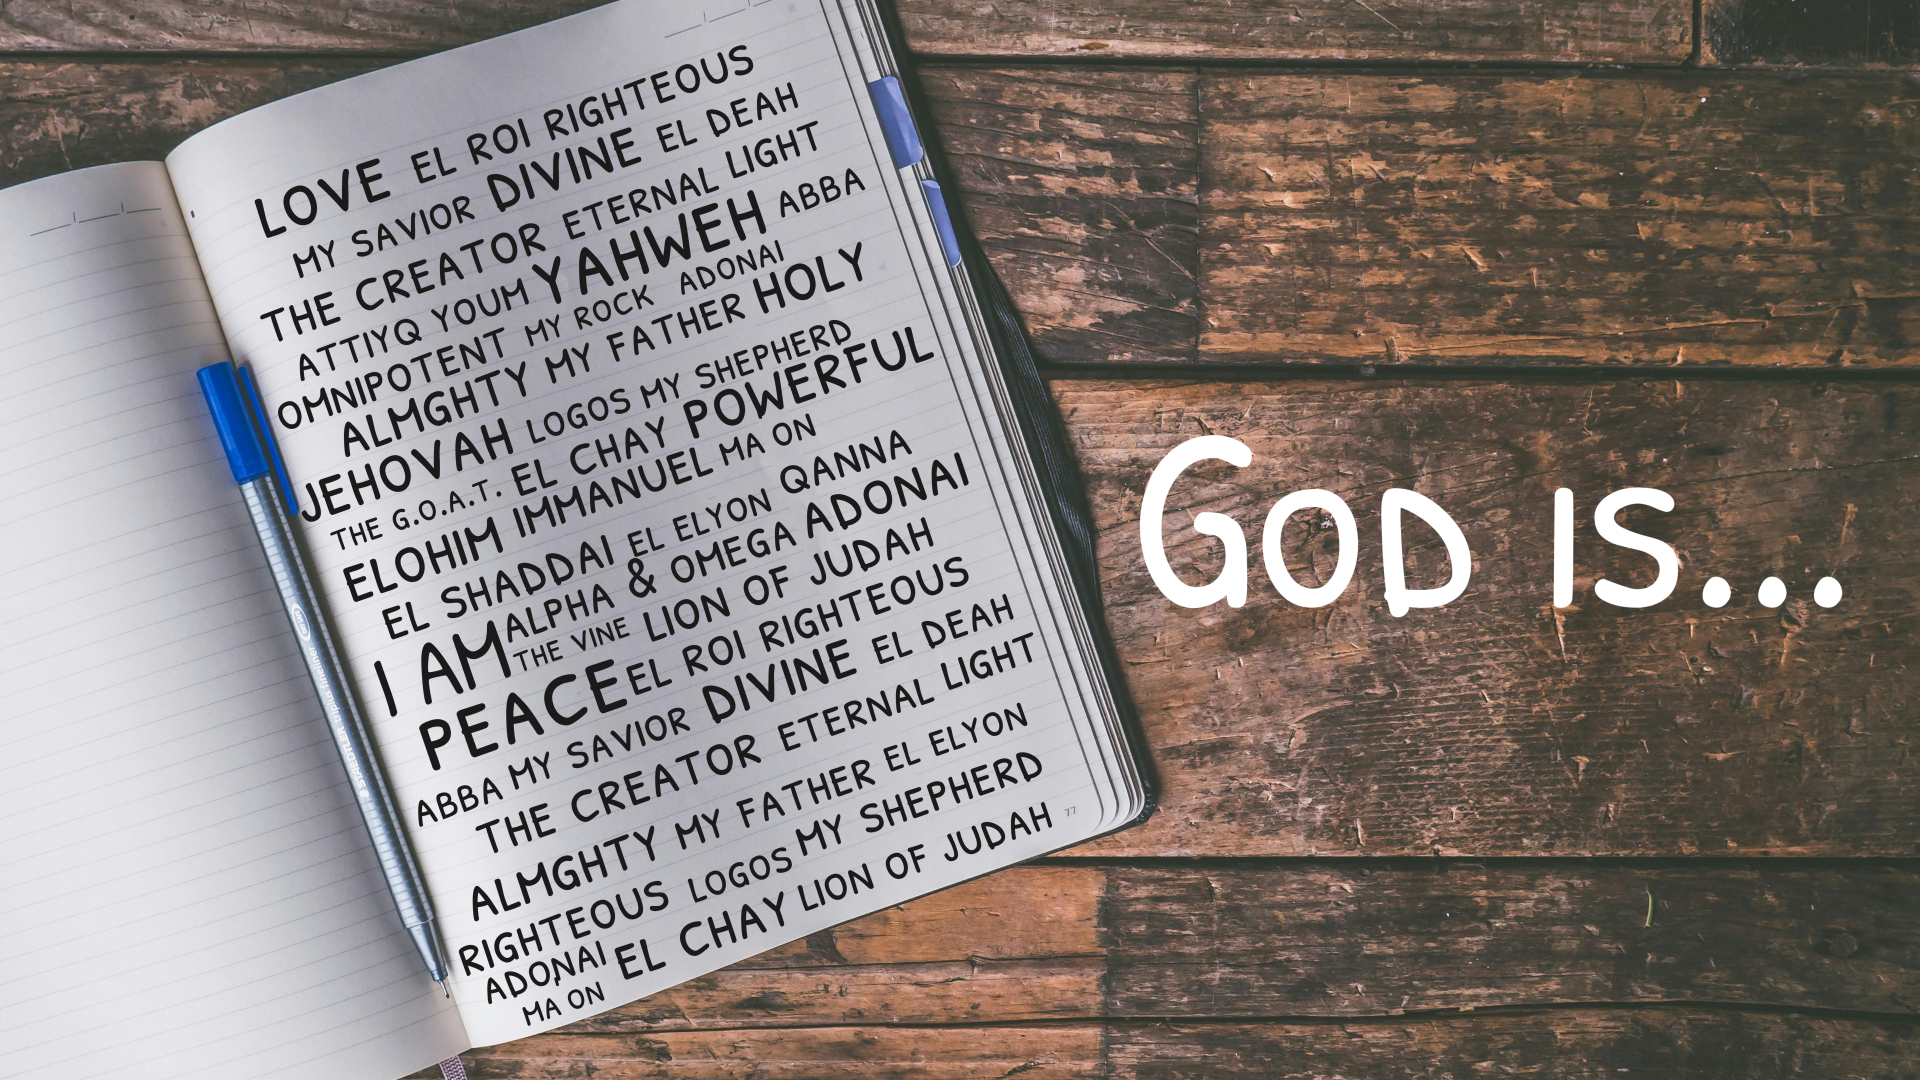 LOVE EL ROI RIGHTEOUS
MY SAVIOR DIVINE EL DEAH
THE CREATOR ETERNAL LIGHT
ATTIYQ YOUM YAHWEH ABBA
OMNIPOTENT MY ROCK ADONAI
ALMGHTY MY FATHER HOLY
JEHOVAH LOGOS MY SHEPHERD
THE G.O.A.T. EL CHAY POWERFUL
ELOHIM IMMANUEL MA ON
EL SHADDAI EL ELYON QANNA
I AM ALPHA & OMEGA ADONAI
THE VINE LION OF JUDAH
PEACE EL ROI RIGHTEOUS
ABBA MY SAVIOR DIVINE EL DEAH
THE CREATOR ETERNAL LIGHT
ALMGHTY MY FATHER EL ELYON
RIGHTEOUS LOGOS MY SHEPHERD
ADONAI EL CHAY LION OF JUDAH
MA ON
77
GOD IS...